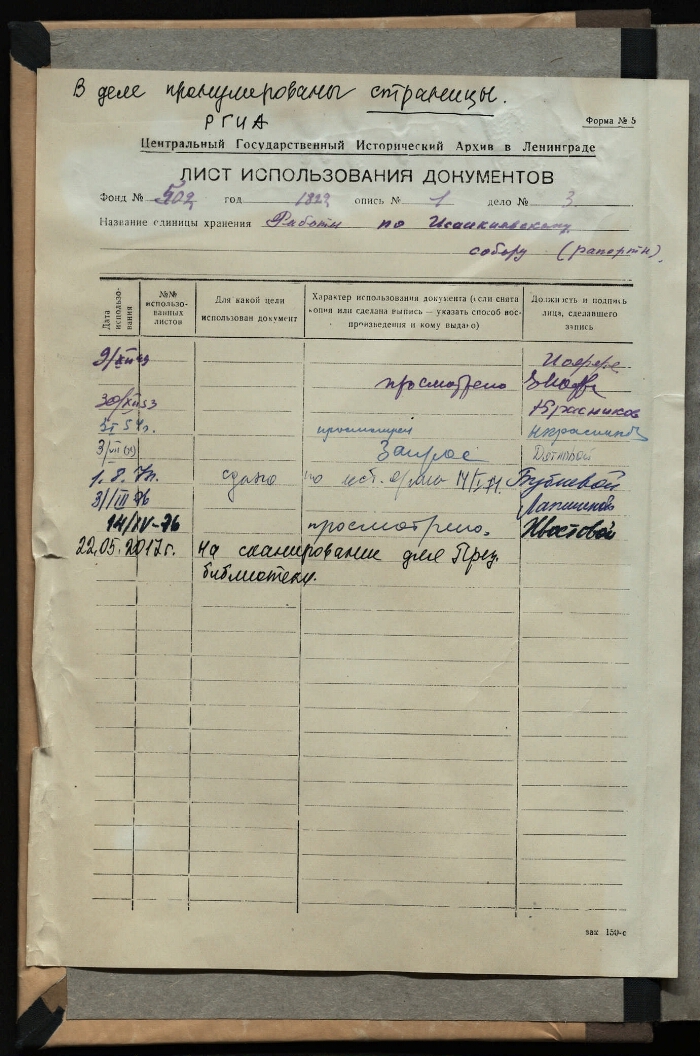 В деле пронумерованы страницы.
РГИА
Форма № 5
Центральный Государственный Исторический Архив в Ленинграде
ЛИСТ ИСПОЛЬЗОВАНИЯ ДОКУМЕНТОВ
Фонд № 502 год 1822 опись № 1 дело № 3.
Название единицы хранения Работы по Исаакиевскому
собору (рапорты).
Дата использования
№№ использованных листов
Для какой цели использован документ
Характер использования документа (если снята копия или сделана выпись — указать способ воспроизведения и кому выдано)
Должность и подпись лица, сделавшего запись
9/XII
просмотрено
30/XII 53 Красников
просмотрен
3/VII Запрос
1. 8. сдано по Бубневой
3/III 76 Лапшиной
14/IV-76 просмотрено. Хвостовой
22.05.2017г. На сканирование для През.
библиотеки.
зак 150-с